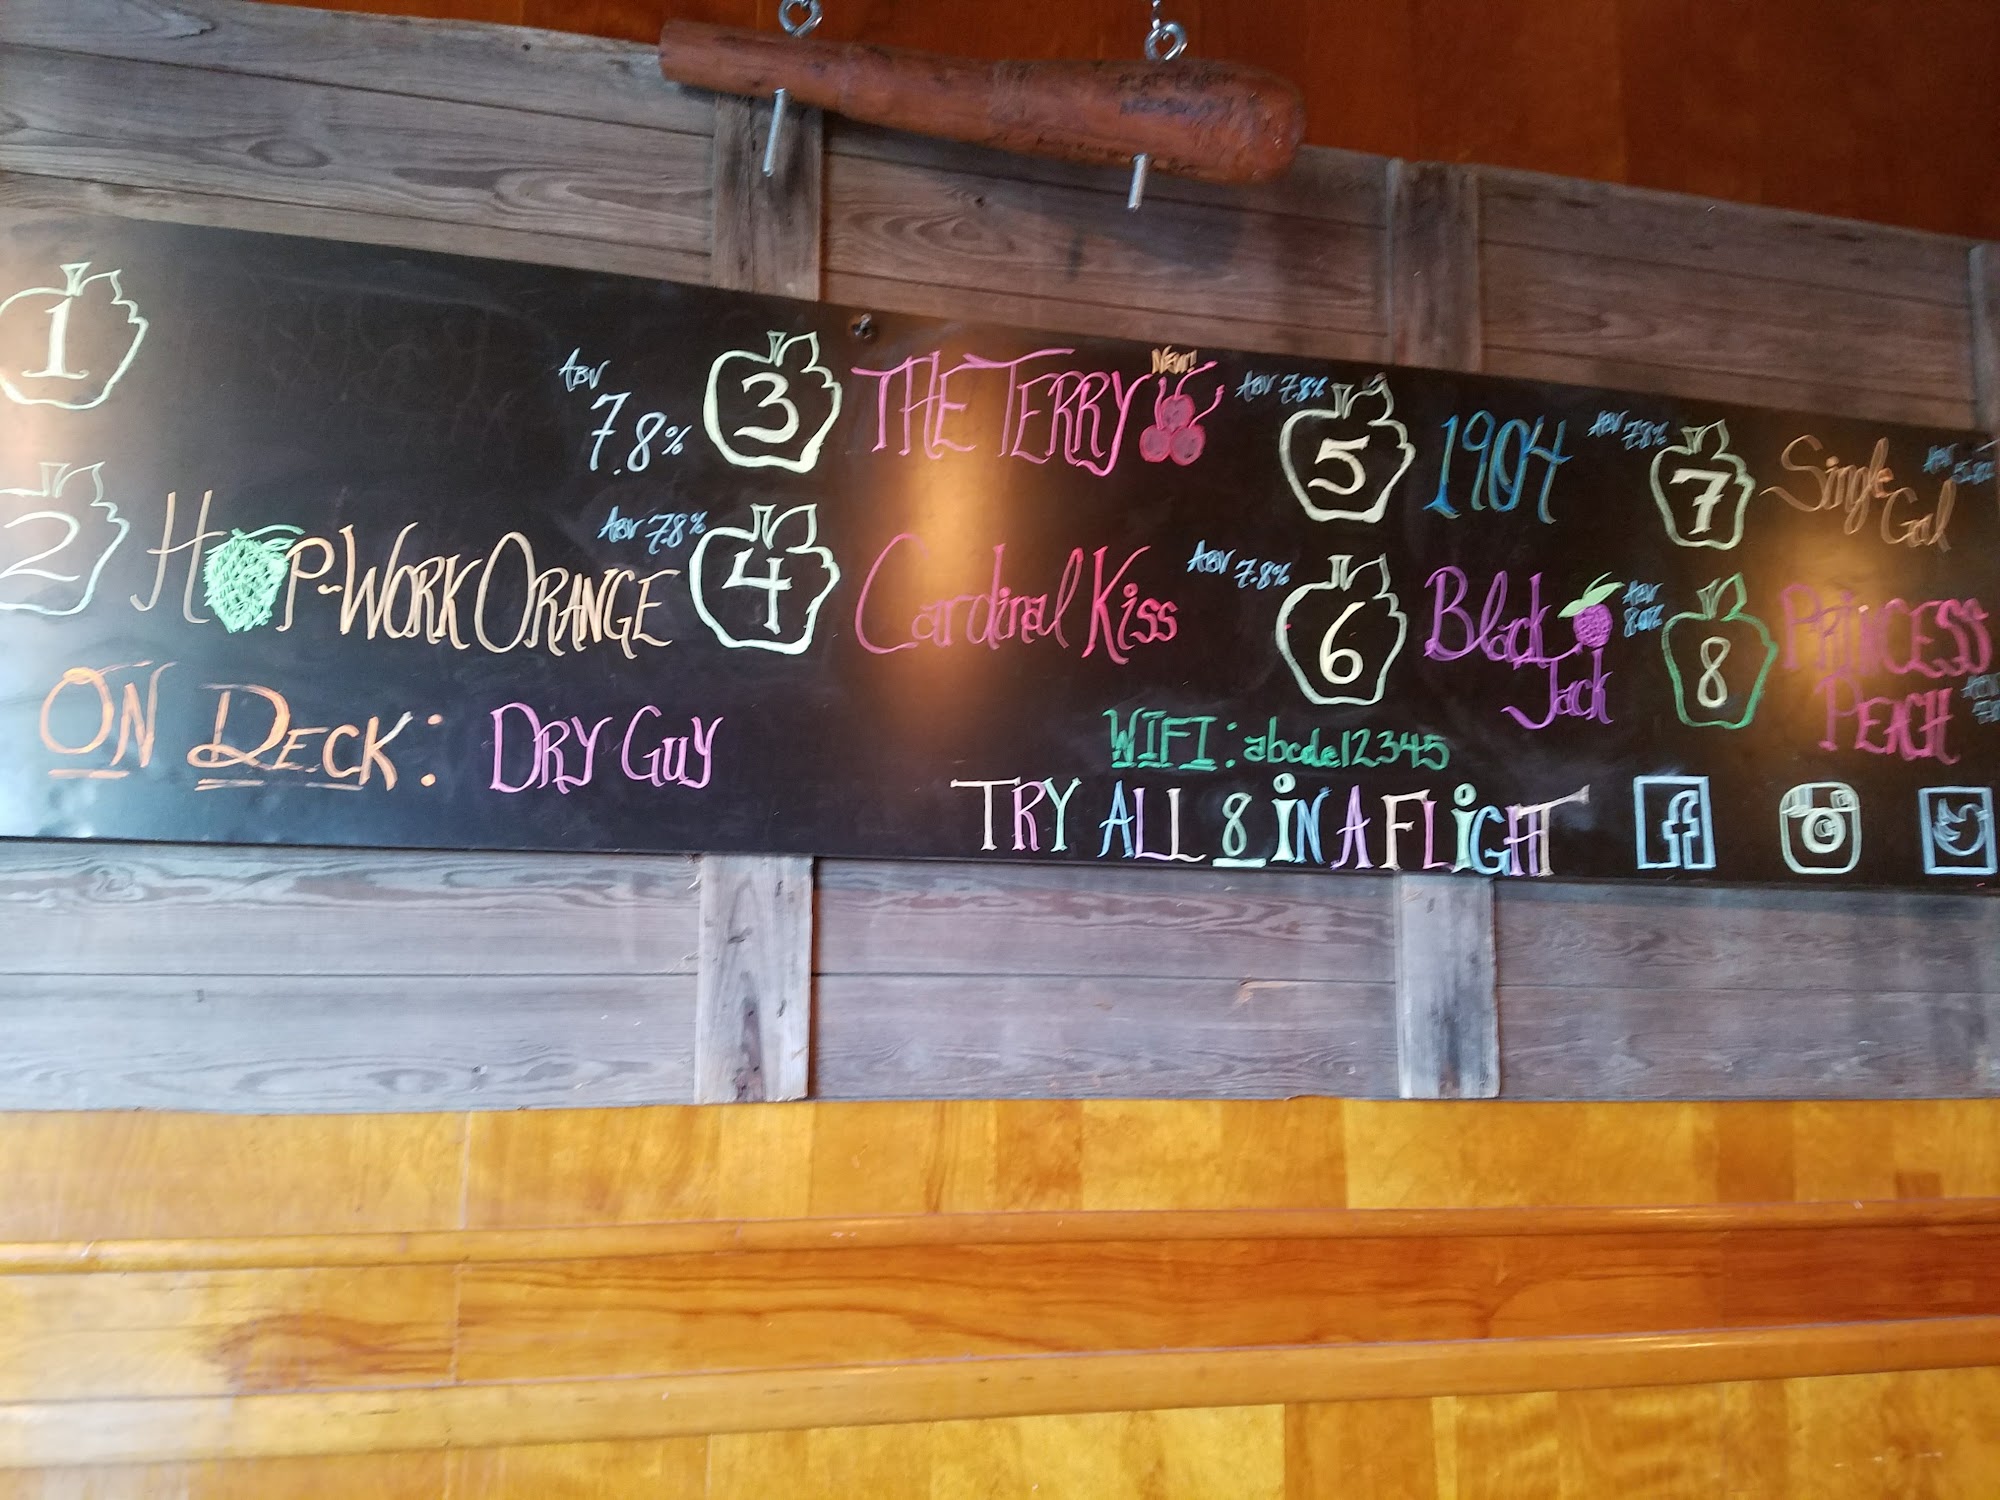 1
ABV
7.8%
2
HOP-WORK ORANGE
ABV 7.8%
ON DECK: DRY GUY
3
THE TERRY
NEW!
ABV 7.8%
4
Cardinal Kiss
ABV 7.8%
5
1904
ABV 7.8%
6
Black Jack
ABV
8.0%
7
Single Gal
ABV
8
PRINCESS
PEACH
WIFI: abcde12345
TRY ALL 8 IN A FLIGHT